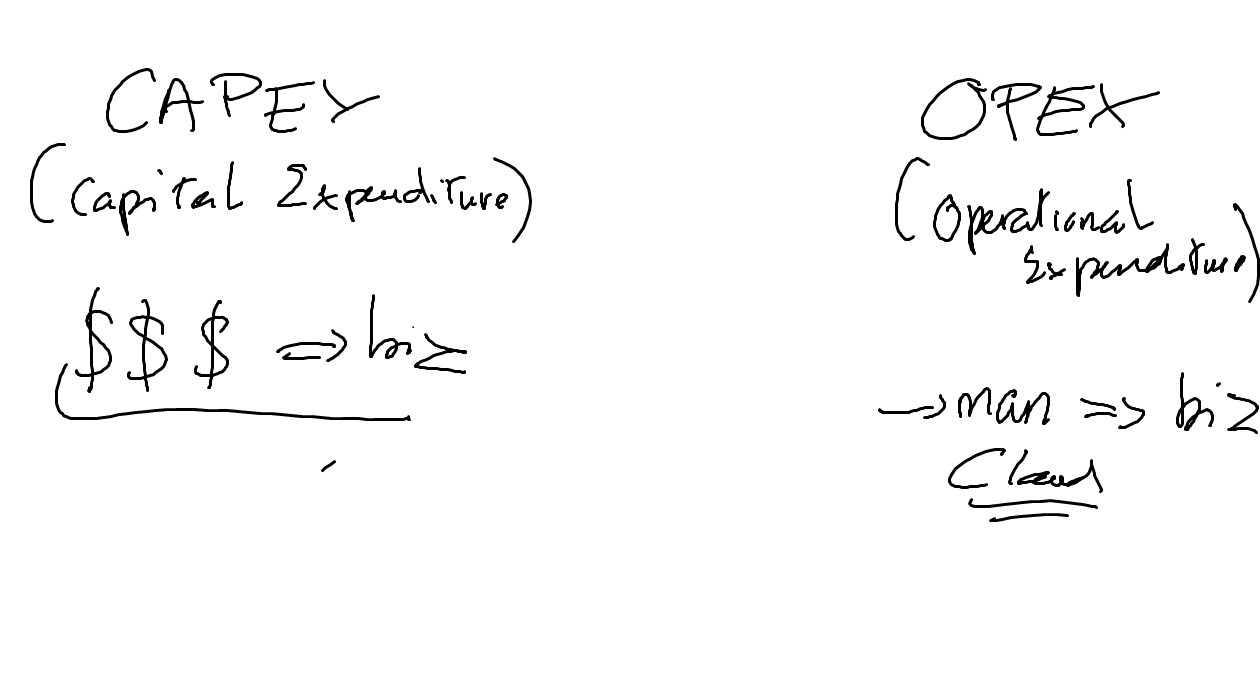 CAPEX
(Capital Expenditure)
$$$ => biz
OPEX
(Operational
Expenditure)
→ man => biz
Cloud